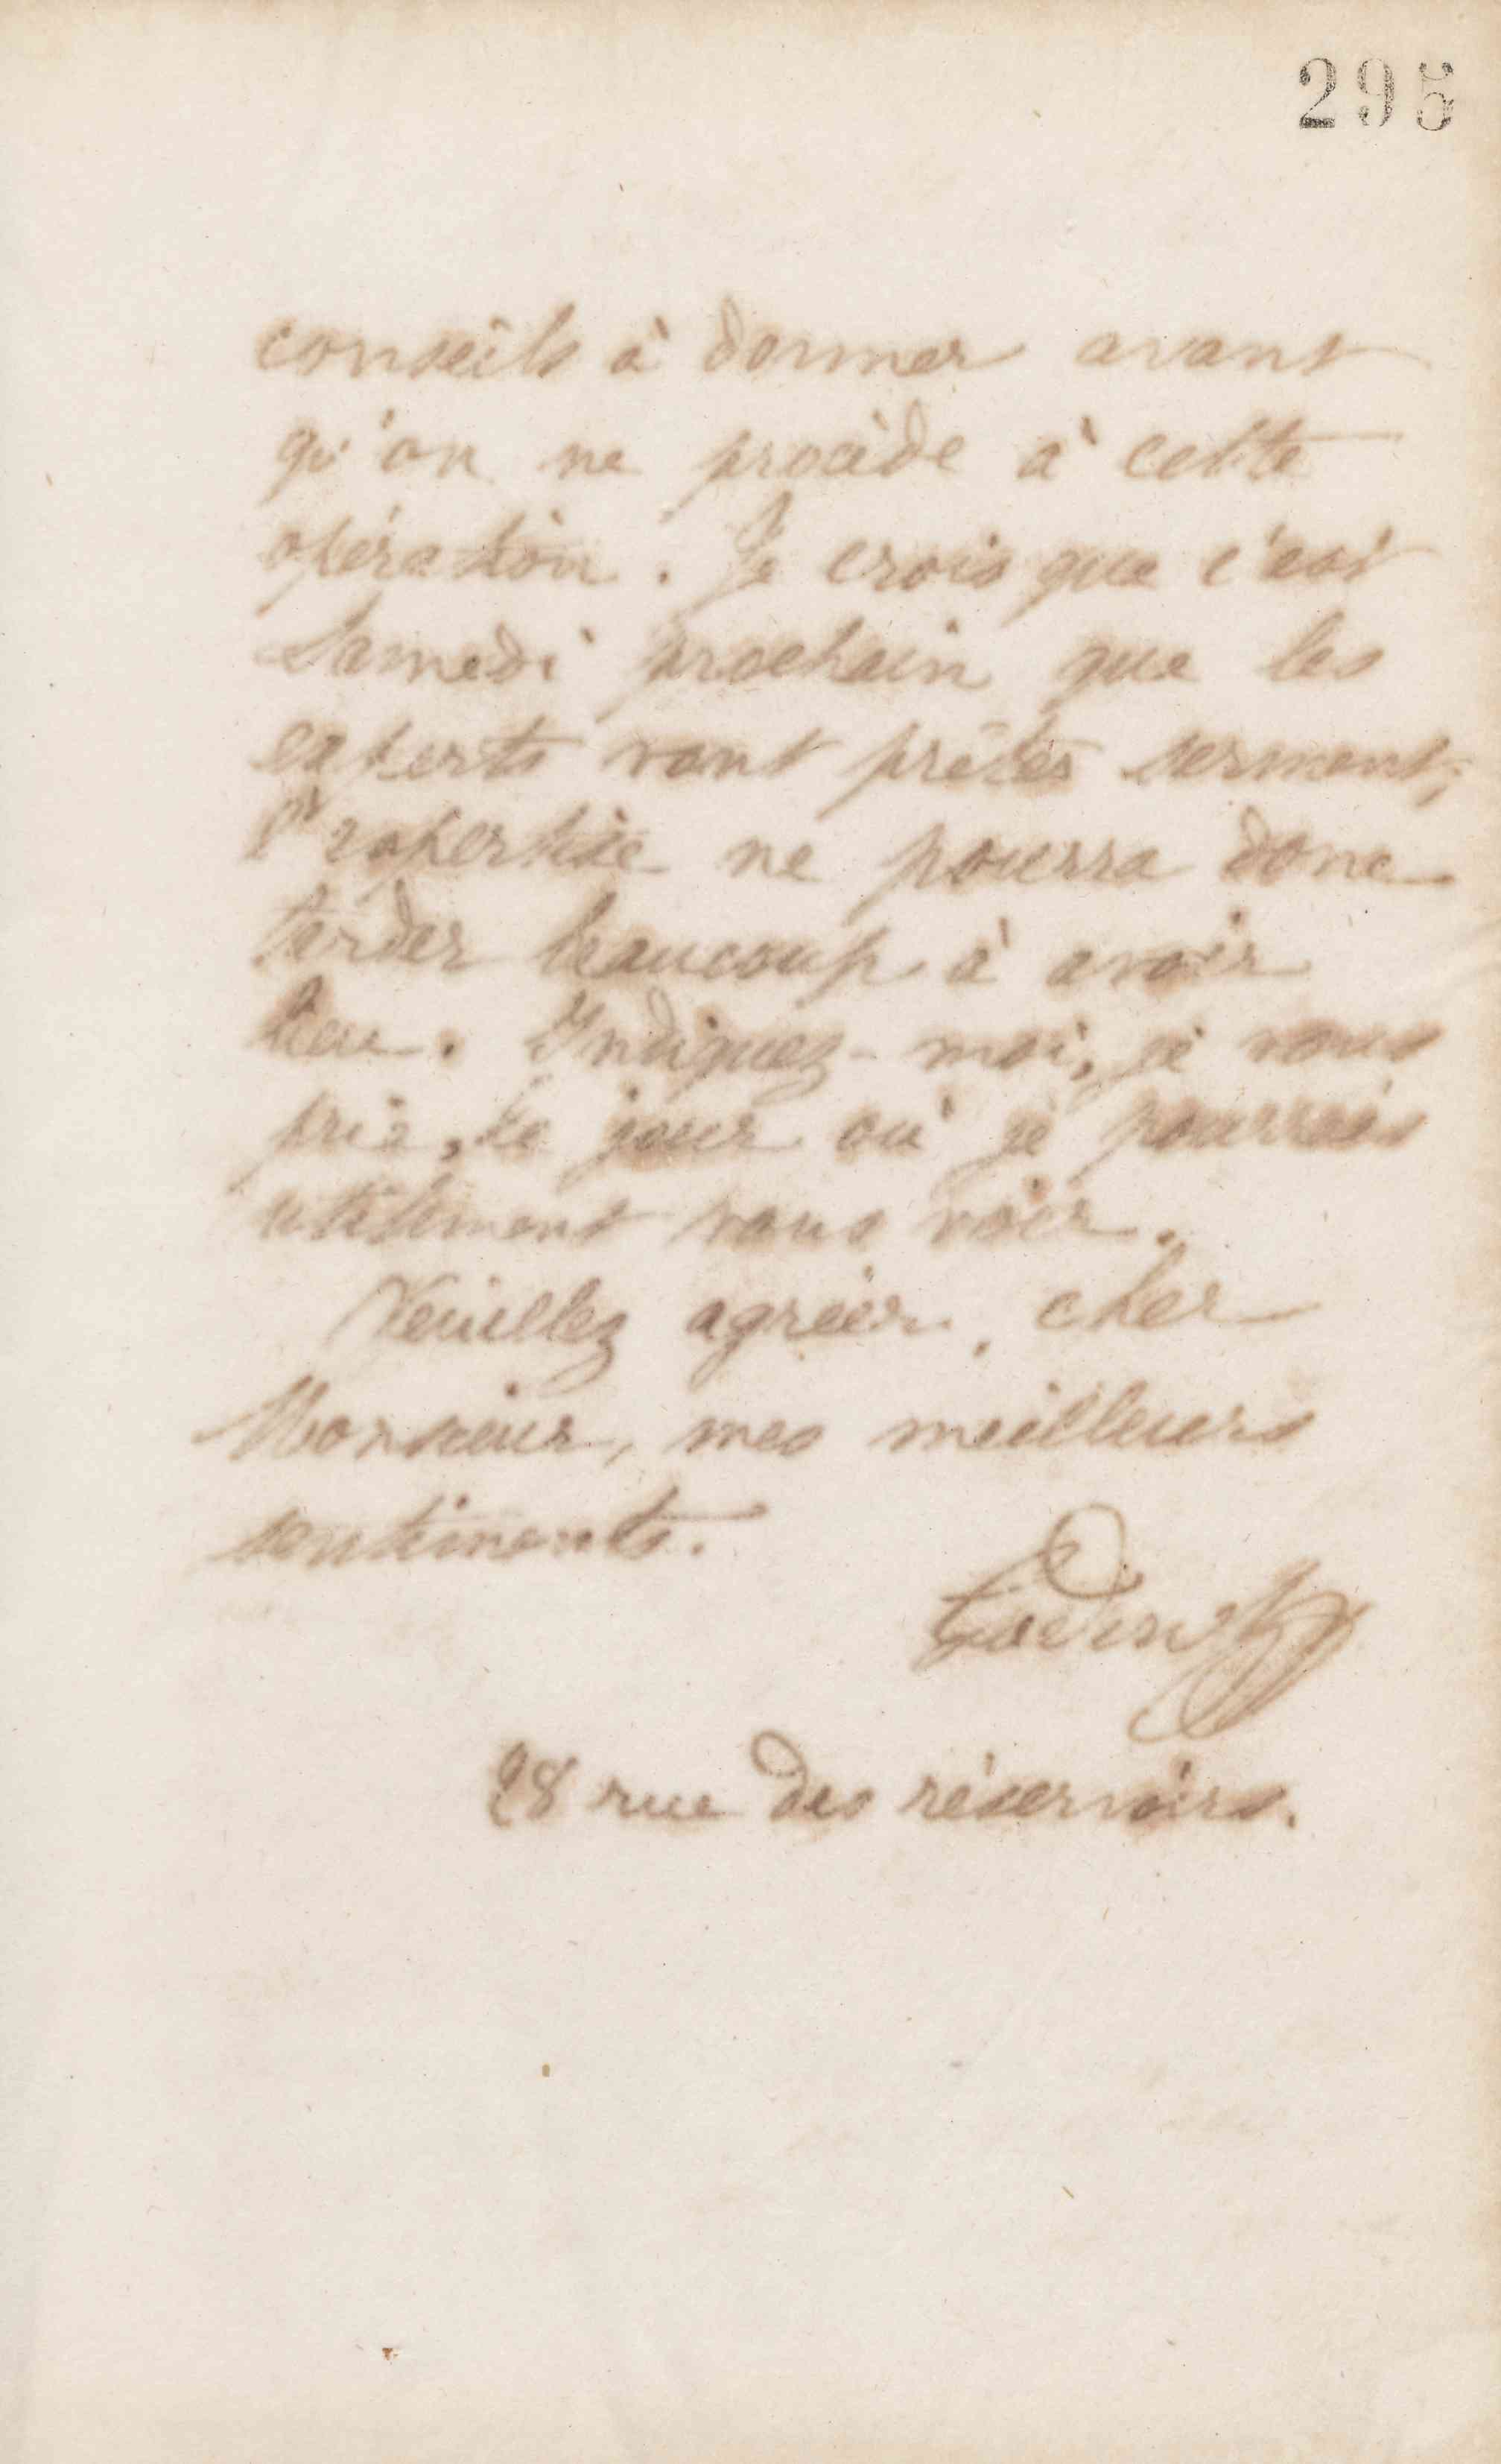 295
conseils à donner avant
qu'on ne procède à cette
opération. Je crois que c'est
Samedi prochain que les
experts vont prêter serment;
l'expertise ne pourra donc
tarder beaucoup à avoir
lieu. Indiquez-moi, je vous
prie, le jour où je pourrais
utilement vous voir.
Veuillez agréer, cher
Monsieur, mes meilleurs
sentiments.
Godin
28 rue des réservoirs.